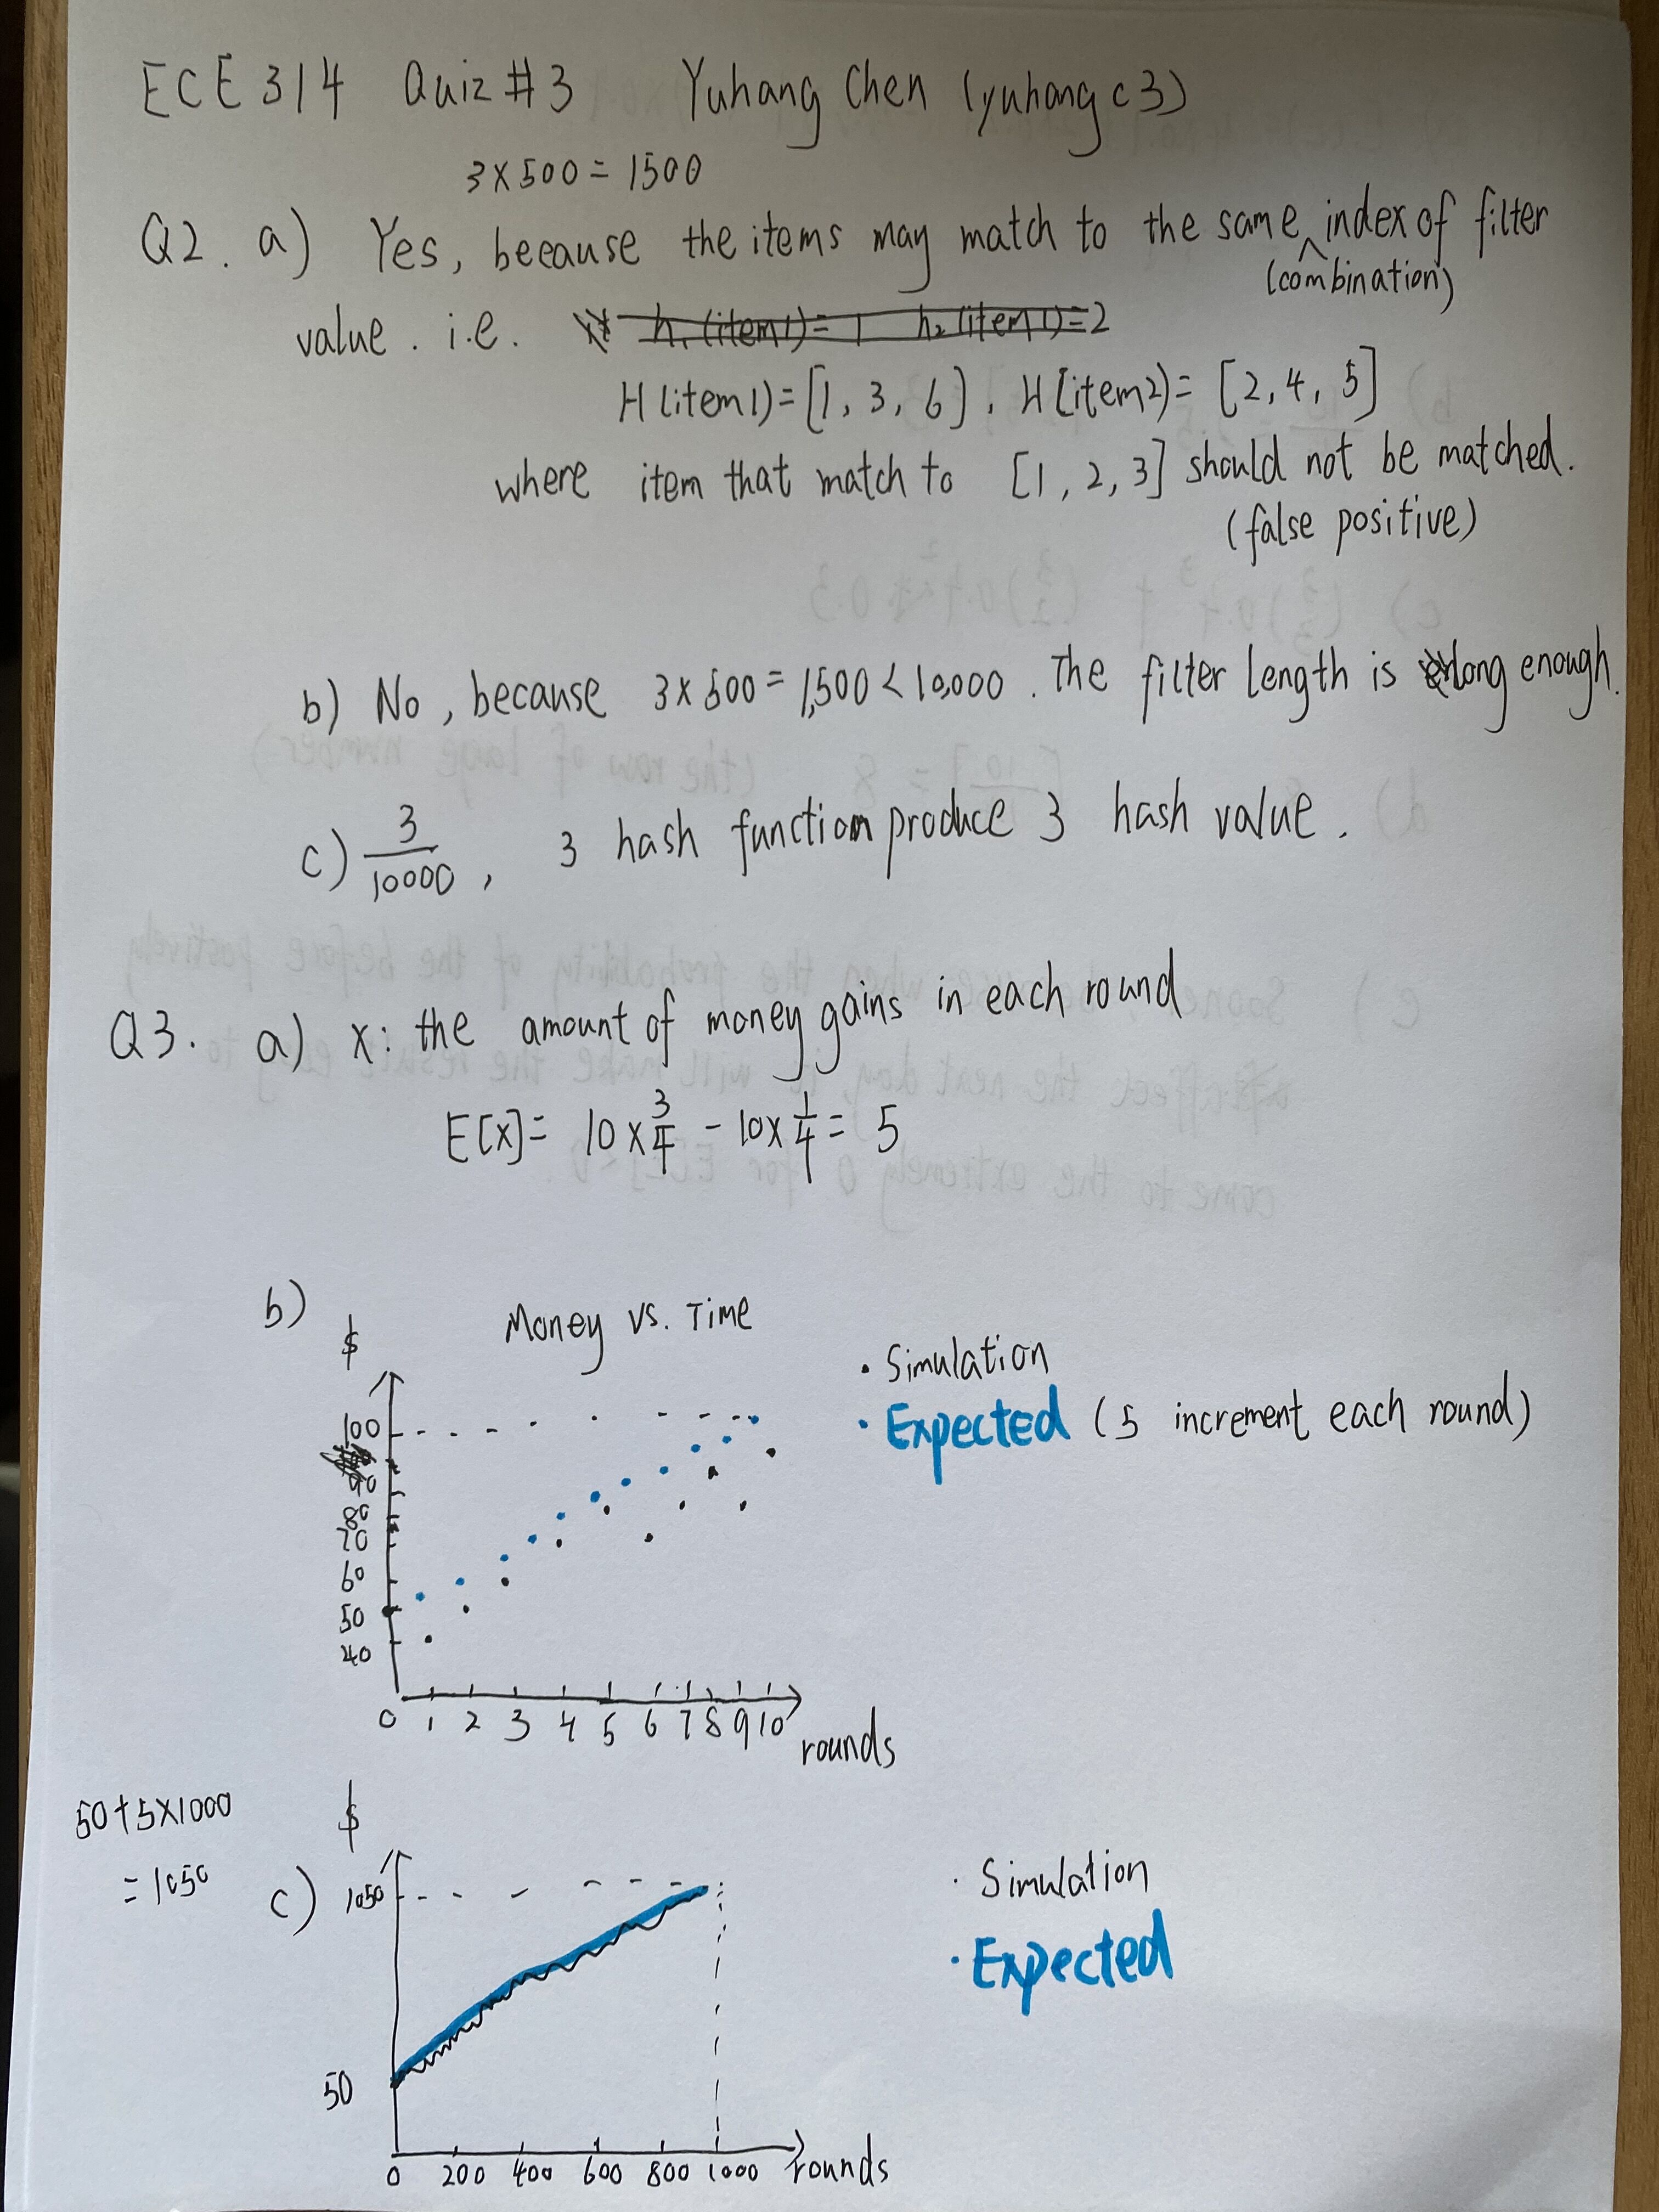 ECE 314 Quiz #3 Yuhang Chen (yuhangc3)
3×500 = 1500
Q2. a) Yes, because the items may match to the same ^ index of filter
(combination)
value. i.e. h₁(item1)=1 h₂(item1)=2
H(item1)=[1, 3, 6], H[item2)= [2, 4, 5]
where item that match to [1, 2, 3] should not be matched.
(false positive)
b) No, because 3×500 = 1,500 < 10,000. The filter length is long enough.
c) 3/10000, 3 hash function produce 3 hash value.
Q3. a) x: the amount of money gains in each round
E[x]= 10×3/4 - 10×1/4 = 5
b) Money vs. Time
$
• Simulation
• Expected (5 increment each round)
100
90
80
70
60
50
40
0 1 2 3 4 5 6 7 8 9 10
rounds
50+5×1000
= 1050
c)
$
1050
50
· Simulation
· Expected
0 200 400 600 800 1000 rounds